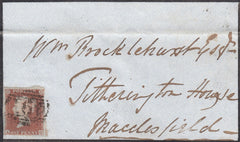 Wm Brocklehurst Esqr
Titherington House
Macclesfield